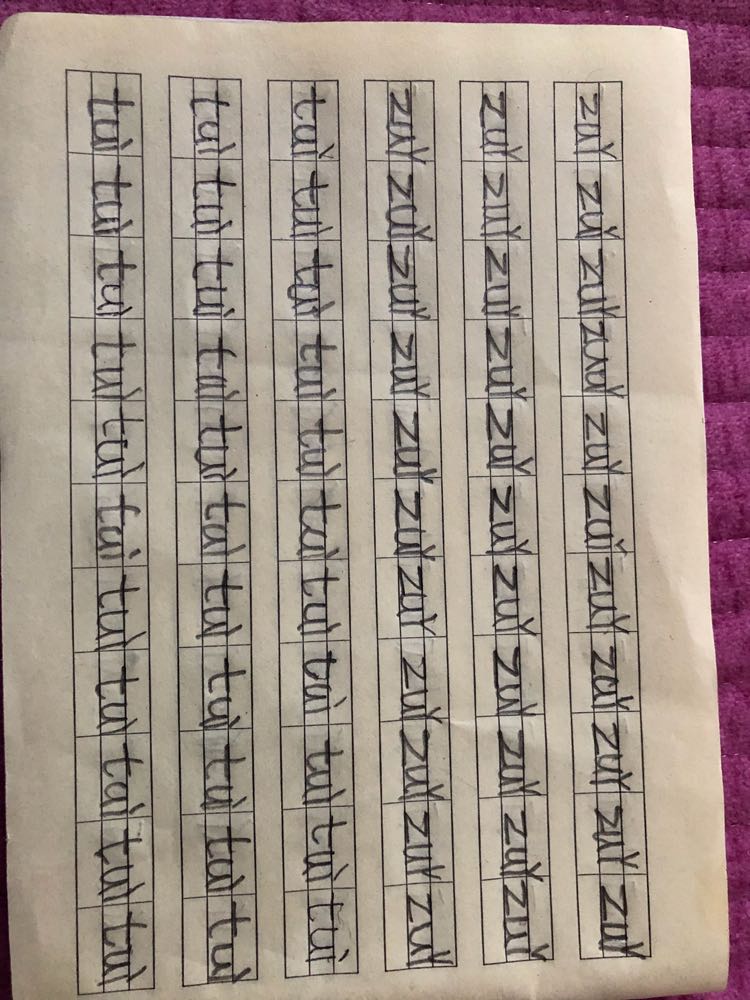 zuǐ zuǐ zuǐ zuǐ zuǐ zuǐ zuǐ zuǐ zuǐ zuǐ zuǐ
zuǐ zuǐ zuǐ zuǐ zuǐ zuǐ zuǐ zuǐ zuǐ zuǐ zuǐ
zuǐ zuǐ zuǐ zuǐ zuǐ zuǐ zuǐ zuǐ zuǐ zuǐ zuǐ
tuǐ tuǐ tuǐ tuǐ tuǐ tuǐ tuǐ tuǐ tuǐ tuǐ tuǐ
tuǐ tuǐ tuǐ tuǐ tuǐ tuǐ tuǐ tuǐ tuǐ tuǐ tuǐ
tuǐ tuǐ tuǐ tuǐ tuǐ tuǐ tuǐ tuǐ tuǐ tuǐ tuǐ